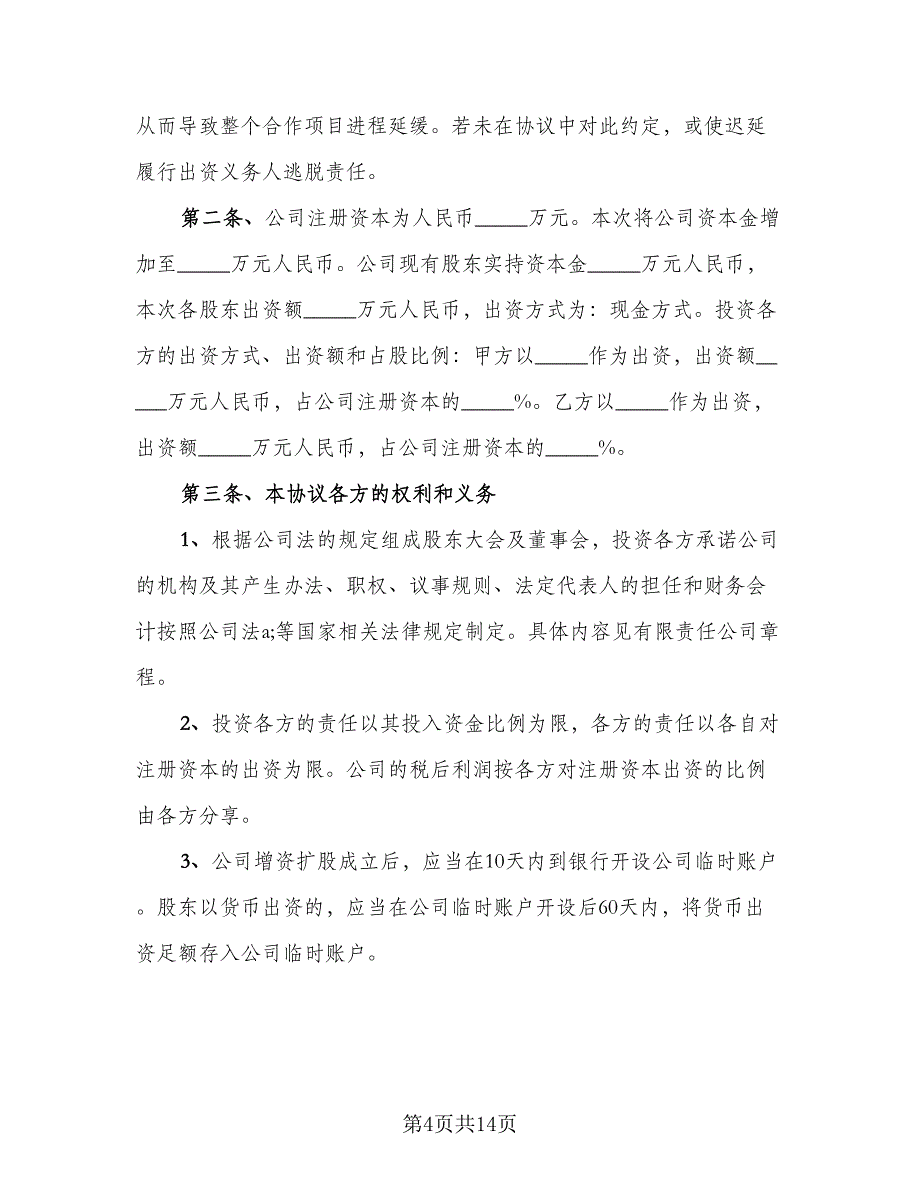 从而导致整个合作项目进程延缓。若未在协议中对此约定，或使迟延
履行出资义务人逃脱责任。
第二条、公司注册资本为人民币_____万元。本次将公司资本金增
加至_____万元人民币。公司现有股东实持资本金_____万元人民币，
本次各股东出资额_____万元人民币，出资方式为：现金方式。投资各
方的出资方式、出资额和占股比例：甲方以_____作为出资，出资额__
___万元人民币，占公司注册资本的_____%。乙方以_____作为出资，
出资额_____万元人民币，占公司注册资本的_____%。
第三条、本协议各方的权利和义务
1、根据公司法的规定组成股东大会及董事会，投资各方承诺公司
的机构及其产生办法、职权、议事规则、法定代表人的担任和财务会
计按照公司法a;等国家相关法律规定制定。具体内容见有限责任公司章
程。
2、投资各方的责任以其投入资金比例为限，各方的责任以各自对
注册资本的出资为限。公司的税后利润按各方对注册资本出资的比例
由各方分享。
3、公司增资扩股成立后，应当在10天内到银行开设公司临时账户
。股东以货币出资的，应当在公司临时账户开设后60天内，将货币出
资足额存入公司临时账户。
第4页共14页